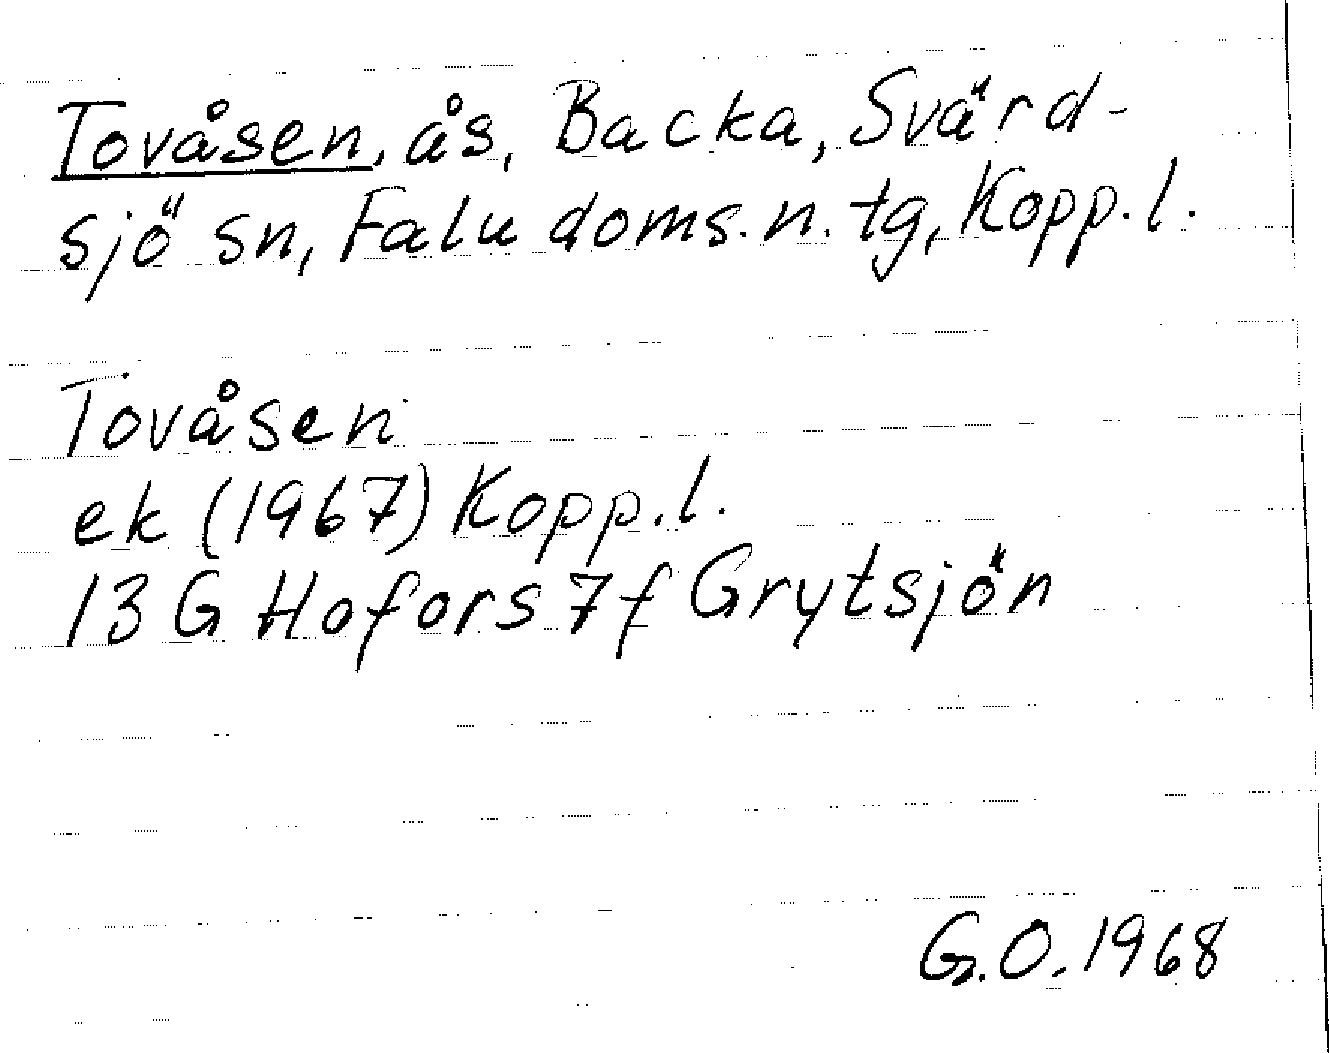 Tovåsen, ås, Backa, Svärd-
sjö sn, Falu doms.n.tg, Kopp.l.
Tovåsen
ek (1967) Kopp.l.
13 G Hofors 7f Grytsjön
G.O. 1968